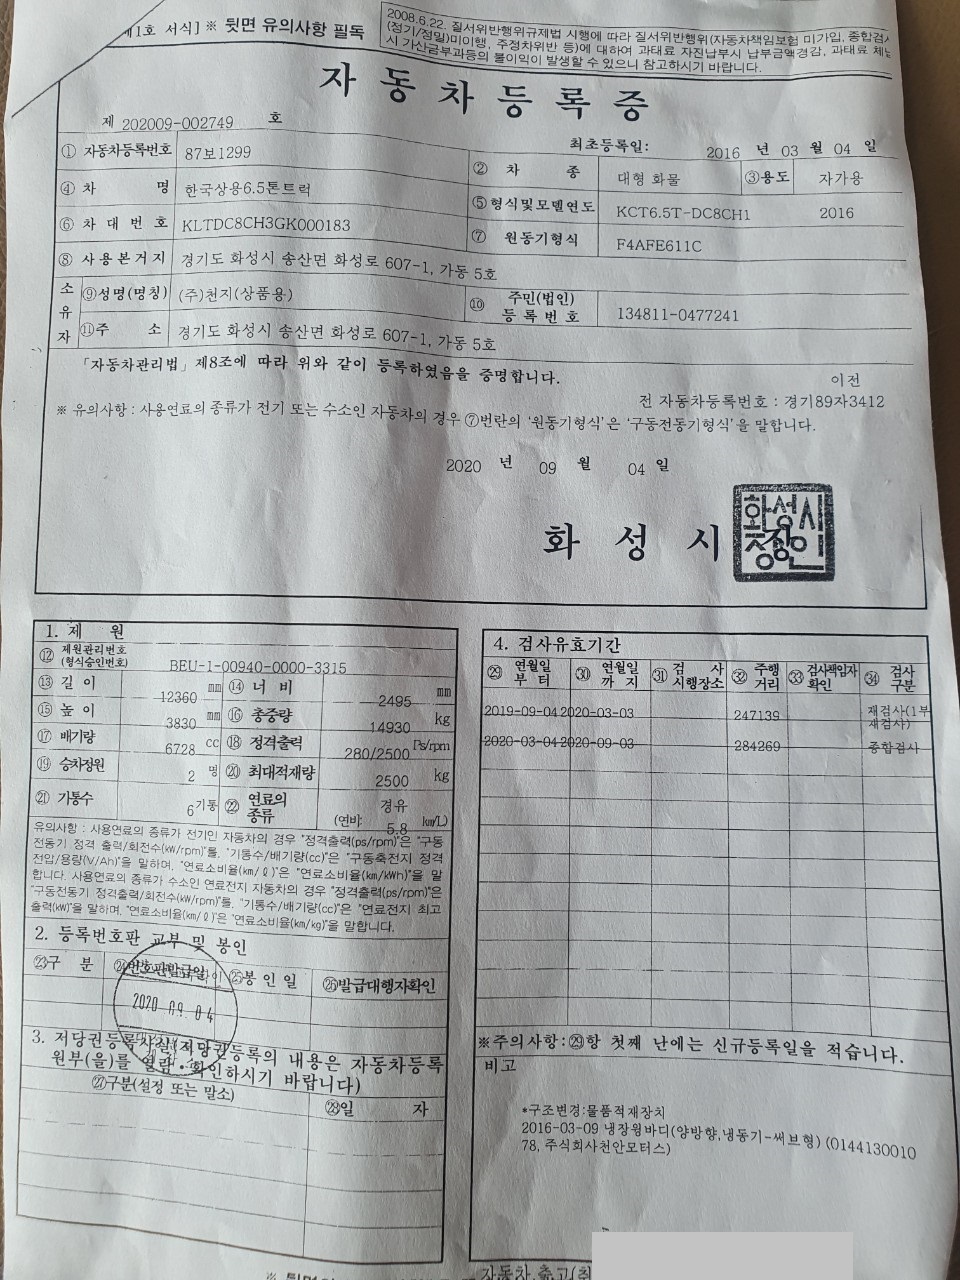 제1호 서식] ※ 뒷면 유의사항 필독
2008.6.22. 질서위반행위규제법 시행에 따라 질서위반행위(자동차책임보험 미가입, 종합검사
(정기/정밀)미이행, 주정차위반 등)에 대하여 과태료 자진납부시 납부금액경감, 과태료 체납
시 가산금부과등의 불이익이 발생할 수 있으니 참고하시기 바랍니다.
자동차등록증
제 202009-002749 호
최초등록일: 2016 년 03 월 04 일
① 자동차등록번호 87보1299 ② 차 종 대형 화물 ③용도 자가용
④ 차 명 한국상용6.5톤트럭 ⑤ 형식및모델연도 KCT6.5T-DC8CH1 2016
⑥ 차 대 번 호 KLTDC8CH3GK000183 ⑦ 원동기형식 F4AFE611C
⑧ 사 용 본 거 지 경기도 화성시 송산면 화성로 607-1, 가동 5호
소유자 ⑨성명(명칭) (주)천지(상품용) ⑩ 주민(법인) 등 록 번 호 134811-0477241
⑪주 소 경기도 화성시 송산면 화성로 607-1, 가동 5호
「자동차관리법」 제8조에 따라 위와 같이 등록하였음을 증명합니다.
이전
전 자동차등록번호 : 경기89자3412
※ 유의사항 : 사용연료의 종류가 전기 또는 수소인 자동차의 경우 ⑦번란의 '원동기형식'은 '구동전동기형식'을 말합니다.
2020 년 09 월 04 일
화 성 시 장
화성시장인
1. 제 원
⑫ 제원관리번호 (형식승인번호) BEU-1-00940-0000-3315
⑬ 길 이 12360 mm ⑭ 너 비 2495 mm
⑮ 높 이 3830 mm ⑯ 총중량 14930 kg
⑰ 배기량 6728 cc ⑱ 정격출력 280/2500 Ps/rpm
⑲ 승차정원 2 명 ⑳ 최대적재량 2500 kg
㉑ 기통수 6기통 ㉒ 연료의 종류 경유 (연비: 5.8 km/L)
유의사항 : 사용연료의 종류가 전기인 자동차의 경우 "정격출력(ps/rpm)"은 "구동
전동기 정격 출력/회전수(kW/rpm)"를, "기통수/배기량(cc)"은 "구동축전지 정격
전압/용량(V/Ah)"을 말하며, "연료소비율(km/ℓ)"은 "연료소비율(km/kWh)"을 말
합니다. 사용연료의 종류가 수소인 연료전지 자동차의 경우 "정격출력(ps/rpm)"은
"구동전동기 정격출력/회전수(kW/rpm)"를, "기통수/배기량(cc)"은 "연료전지 최고
출력(kW)"을 말하며, "연료소비율(km/ℓ)"은 "연료소비율(km/kg)"을 말합니다.
2. 등록번호판 교부 및 봉인
㉓구 분 ㉔번호판발급일 ㉕봉 인 일 ㉖발급대행자확인
2020.09.04
3. 저당권등록사실(저당권등록의 내용은 자동차등록
원부(을)를 열람·확인하시기 바랍니다)
㉗구분(설정 또는 말소) ㉘일 자
4. 검사유효기간
㉙ 연월일 부 터 ㉚ 연월일 까 지 ㉛ 검 사 시행장소 ㉜ 주행 거리 ㉝ 검사책임자 확인 ㉞ 검사 구분
2019-09-04 2020-03-03 247139 재검사(1부 재검사)
2020-03-04 2020-09-03 284269 종합검사
※주의사항:㉙항 첫째 난에는 신규등록일을 적습니다.
비고
*구조변경:물품적재장치
2016-03-09 냉장윙바디(양방향,냉동기-써브형) (0144130010
78, 주식회사천안모터스)
자동차 출고(취